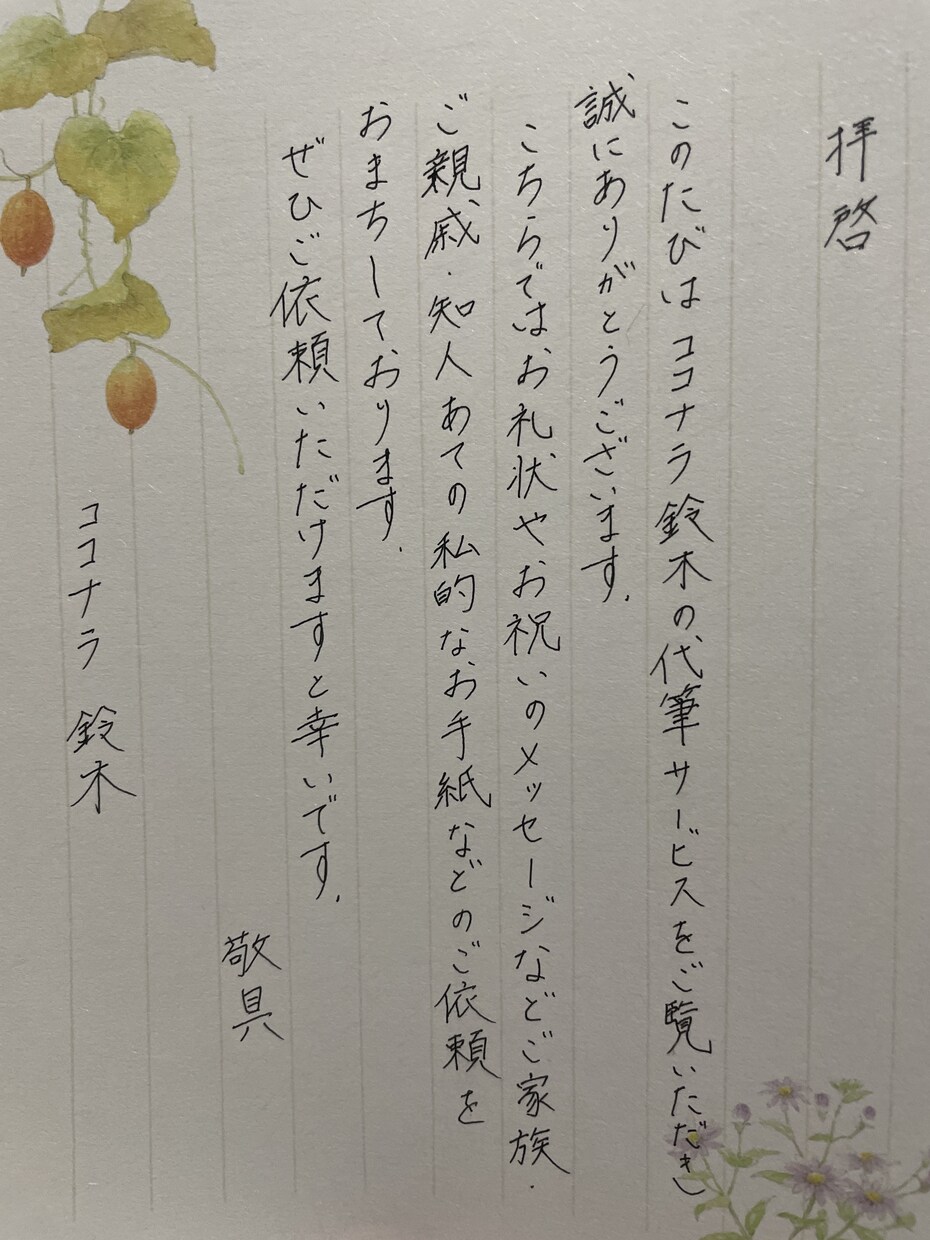 拝啓
このたびはココナラ鈴木の代筆サービスをご覧いただき
誠にありがとうございます。
こちらではお礼状やお祝いのメッセージなどご家族・
ご親戚・知人あての私的なお手紙などのご依頼を
おまちしております。
ぜひご依頼いただけますと幸いです。
敬具
ココナラ 鈴木